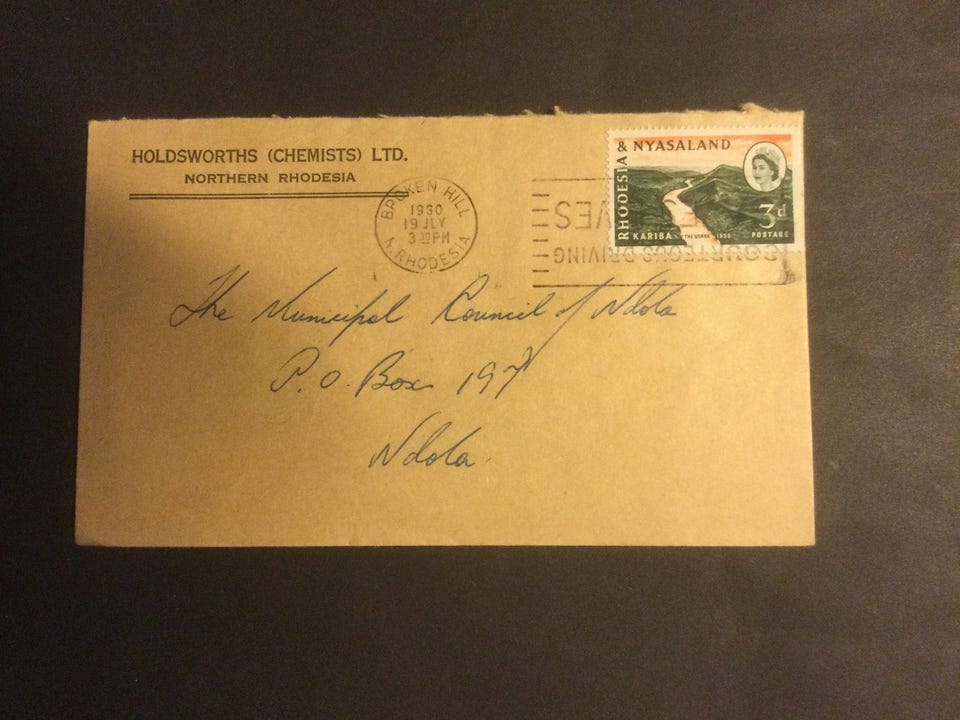 HOLDSWORTHS (CHEMISTS) LTD.
NORTHERN RHODESIA
BROKEN HILL
1960
19 JLY
3 30 PM
N. RHODESIA
COURTEOUS DRIVING
VES
RHODESIA & NYASALAND
3d
KARIBA THE GORGE 1955
POSTAGE
The Municipal Council of Ndola
P.O. Box 197
Ndola.